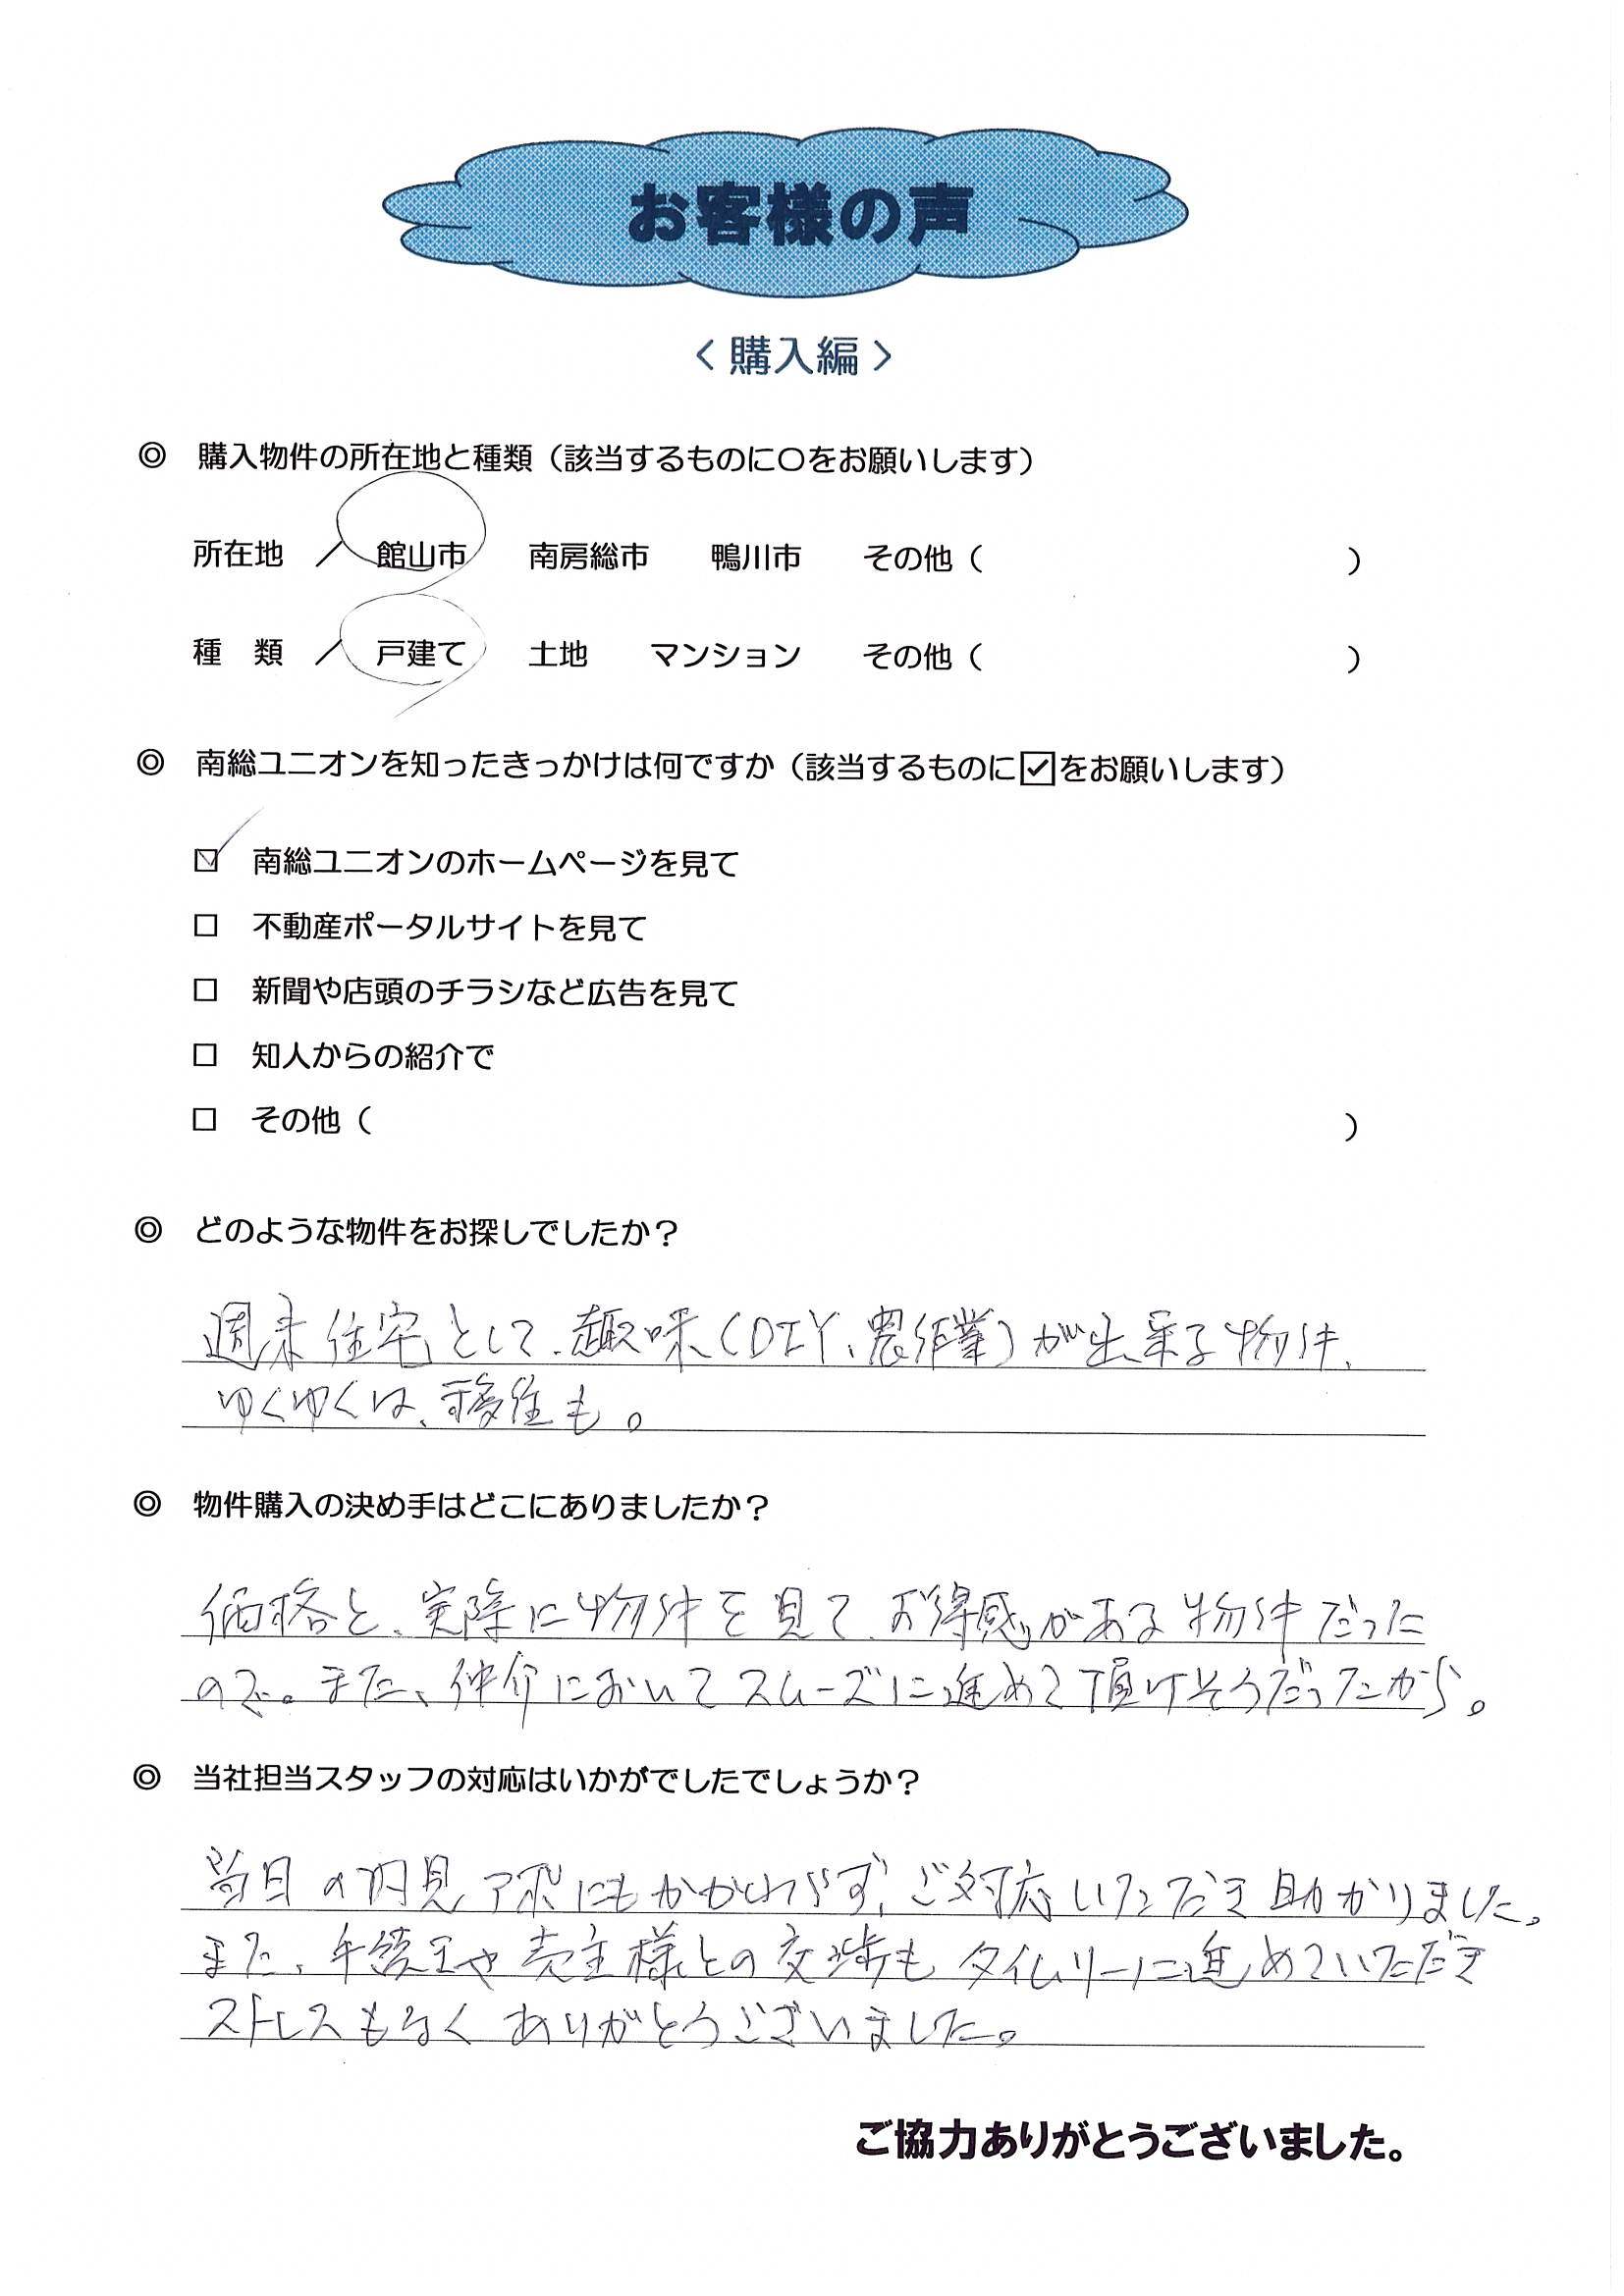 お客様の声
〈購入編〉
◎ 購入物件の所在地と種類（該当するものに〇をお願いします）
所在地 ／ 館山市 南房総市 鴨川市 その他（ ）
種 類 ／ 戸建て 土地 マンション その他（ ）
◎ 南総ユニオンを知ったきっかけは何ですか（該当するものに☑をお願いします）
☑ 南総ユニオンのホームページを見て
□ 不動産ポータルサイトを見て
□ 新聞や店頭のチラシなど広告を見て
□ 知人からの紹介で
□ その他（ ）
◎ どのような物件をお探しでしたか？
週末住宅として、趣味（DIY、農作業）が出来る物件、
ゆくゆくは、移住も。
◎ 物件購入の決め手はどこにありましたか？
価格と、実際に物件を見て、お得感がある物件だった
ので。また、仲介においてスムーズに進めて頂けそうだったから。
◎ 当社担当スタッフの対応はいかがでしたでしょうか？
当日の内見アポにもかかわらず、ご対応いただき助かりました。
また、手続きや売主様との交渉もタイムリーに進めていただき
ストレスもなくありがとうございました。
ご協力ありがとうございました。